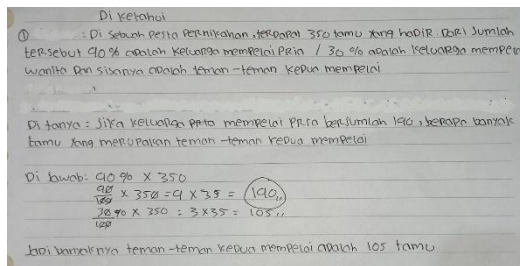 Di ketahui
① : Di sebuah pesta pernikahan, terdapat 350 tamu yang hadir dari jumlah
tersebut 40% adalah keluarga mempelai pria / 30% adalah keluarga mempelai
wanita dan sisanya adalah teman-teman kedua mempelai
Di tanya : Jika keluarga pria mempelai pria berjumlah 140, berapa banyak
tamu yang merupakan teman-teman kedua mempelai
Di jawab: 40% × 350
40/100 × 350 = 4 × 35 = 140,,
30%/100 × 350 : 3×35 = 105,,
Jadi banyaknya teman-teman kedua mempelai adalah 105 tamu